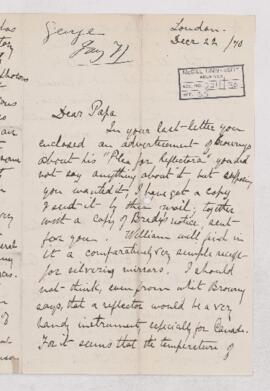 George
London.
Decr 22 /70
McGILL UNIVERSITY
ARCHIVES
ACC. NO.
REF.
Dear Papa
In your last letter you
enclosed an advertisement of Brownings
about his "Plea for Reflectors" you did
not say anything about it, but
you wanted it I have got a copy
& send it by this mail; together
with a copy of Brady's notice, sent
for you. William will find in
it a comparatively simple receipt
for silvering mirrors. I should
not think, even from what Browning
says, that a reflector would be a very
handy instrument especially for Canada.
For it seems that the temperature of